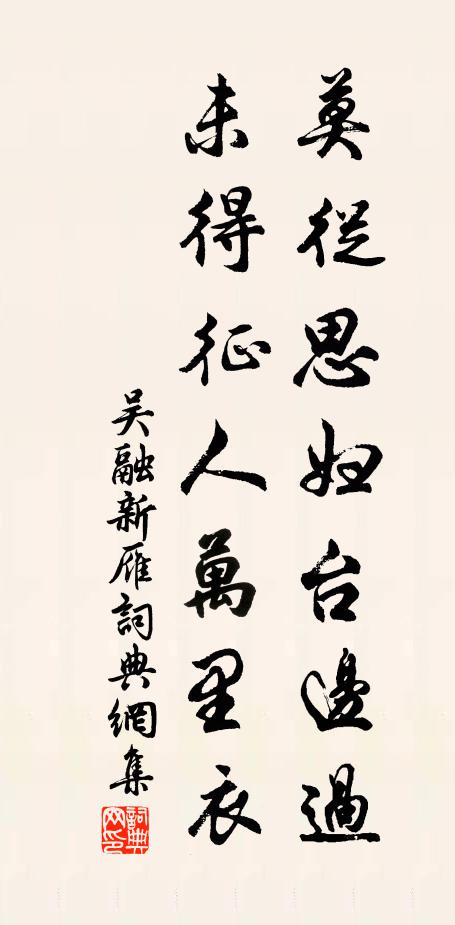 莫從思妇台邊過
未得征人萬里衣
吴融新雁詞典網集
詞典網印